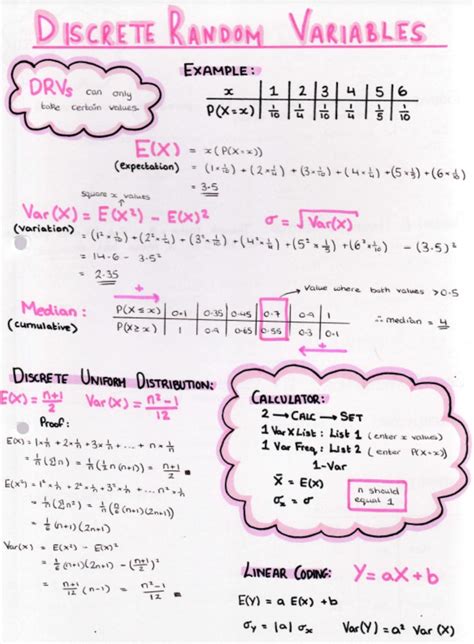 DISCRETE RANDOM VARIABLES
DRVs can only
take certain values
EXAMPLE:
x | 1 | 2 | 3 | 4 | 5 | 6
P(X=x) | 1/10 | 1/4 | 1/10 | 1/4 | 1/5 | 1/10
E(X) = x(P(X=x))
(expectation) = (1×1/10) + (2×1/4) + (3×1/10) + (4×1/4) + (5×1/5) + (6×1/10)
= 3.5
square x values
Var(X) = E(X²) - E(X)²   σ = √Var(x)
(variation) = (1²×1/10) + (2²×1/4) + (3²×1/10) + (4²×1/4) + (5²×1/5) + (6²×1/10) - (3.5)²
= 14.6 - 3.5²
= 2.35
+
value where both values > 0.5
Median: P(X≤x) | 0.1 | 0.35 | 0.45 | 0.7 | 0.9 | 1
(cumulative) P(X≥x) | 1 | 0.9 | 0.65 | 0.55 | 0.3 | 0.1
∴ median = 4
+
DISCRETE UNIFORM DISTRIBUTION:
E(X) = n+1/2   Var(X) = n²-1/12
Proof:
E(X) = 1×1/n + 2×1/n + 3×1/n + ... + n×1/n
= 1/n(Σn) = 1/n(½n(n+1)) = n+1/2
E(X²) = 1²×1/n + 2²×1/n + 3²×1/n + ... + n²×1/n
= 1/n(Σn²) = 1/n(n/6(n+1)(2n+1))
= 1/6(n+1)(2n+1)
Var(X) = E(X²) - E(X)²
= 1/6(n+1)(2n+1) - (n+1/2)²
= n+1/12(n-1) = n²-1/12
CALCULATOR:
2 → CALC → SET
1 Var X List : List 1 (enter x values)
1 Var Freq : List 2 (enter P(X=x))
1-Var
x̄ = E(X)
σx = σ
n should
equal 1
LINEAR CODING: Y=aX+b
E(Y) = a E(X) + b
σY = |a| σX   Var(Y) = a² Var(X)